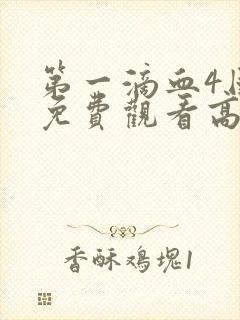 第一滴血4
免費觀看高
香酥鸡塊1